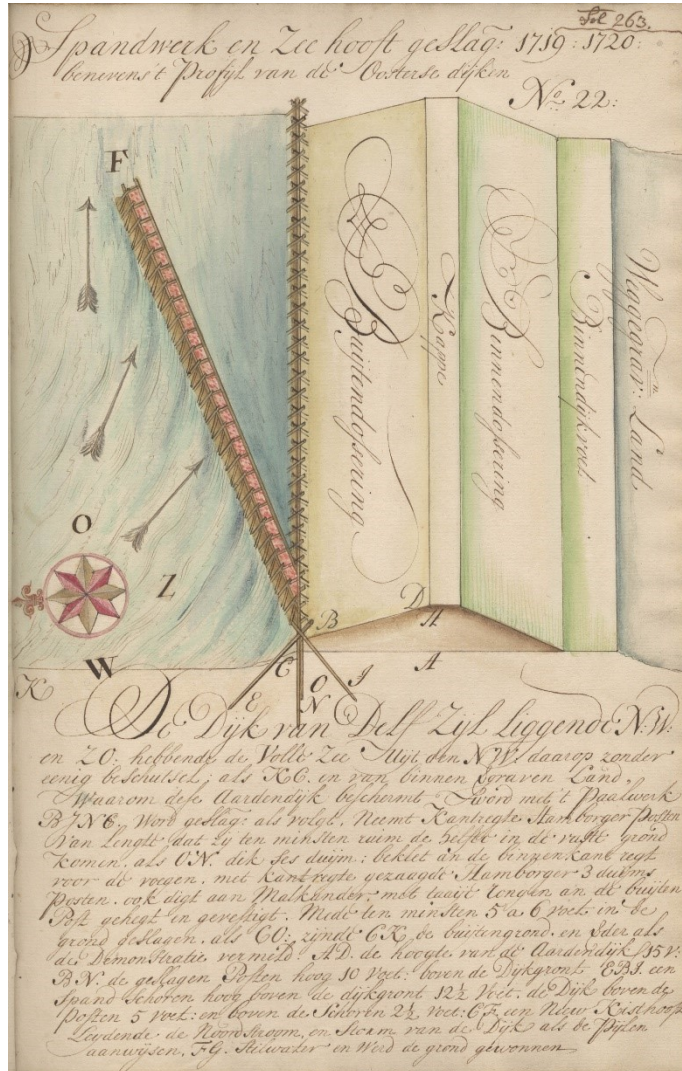 Fol 263.
Spandwerk en Zee hooft geslag: 1719: 1720:
benevens't Profyl van de Oosterse dijken
No. 22:
F
Buijtendosering
Kappe
Binnendosering
Binnendijksvoet
Weggegrav:n Land
O
Z
W
B
D
H
A
C
E
O
N
I
K
De Dijk van Delf Zijl Liggende N:W:
en ZO: hebbende de Volle Zee Uijt den N W: daarop zonder
eenig beschutsel; als K C. en van binnen Land.
Waarom dese Aardendijk beschermt Word met 't Paalwerk
B I N C. Word geslag: als volgt. Neemt Kantregte Hamborger Posten
van Lengte dat zij ten minsten ruim de helfte in de vaste grond
komen. als O N. dik ses duijm: beklet an de binnenkant regt
voor de voegen. met kantregte gezaagde Hamborger 3 duijms
Posten. ook digt aan Malkander. met taaije an de buijten
Post gehegt en gevestigt. Mede ten minsten 5 a 6 voet in de
grond geslagen. als CO: zijnde C K de buitengrond. en
de Demonstratie vermeld A D. de hoogte van de Aardendijk 15 v:
B N. de geslagen Posten hoog 10 Voet: boven de Dijkgront E B I. een
Spand Schoren hoog boven de dijkgront 12½ Voet. de Dijk boven de
Posten 5 voet: en boven de Schoren 2½ voet: C F. een Niew Kisthooft
Leydende de Noordstroom, en Storm van de Dijk als de Pijlen
aanwijsen. F G. Stilwater en Werd de grond gewonnen